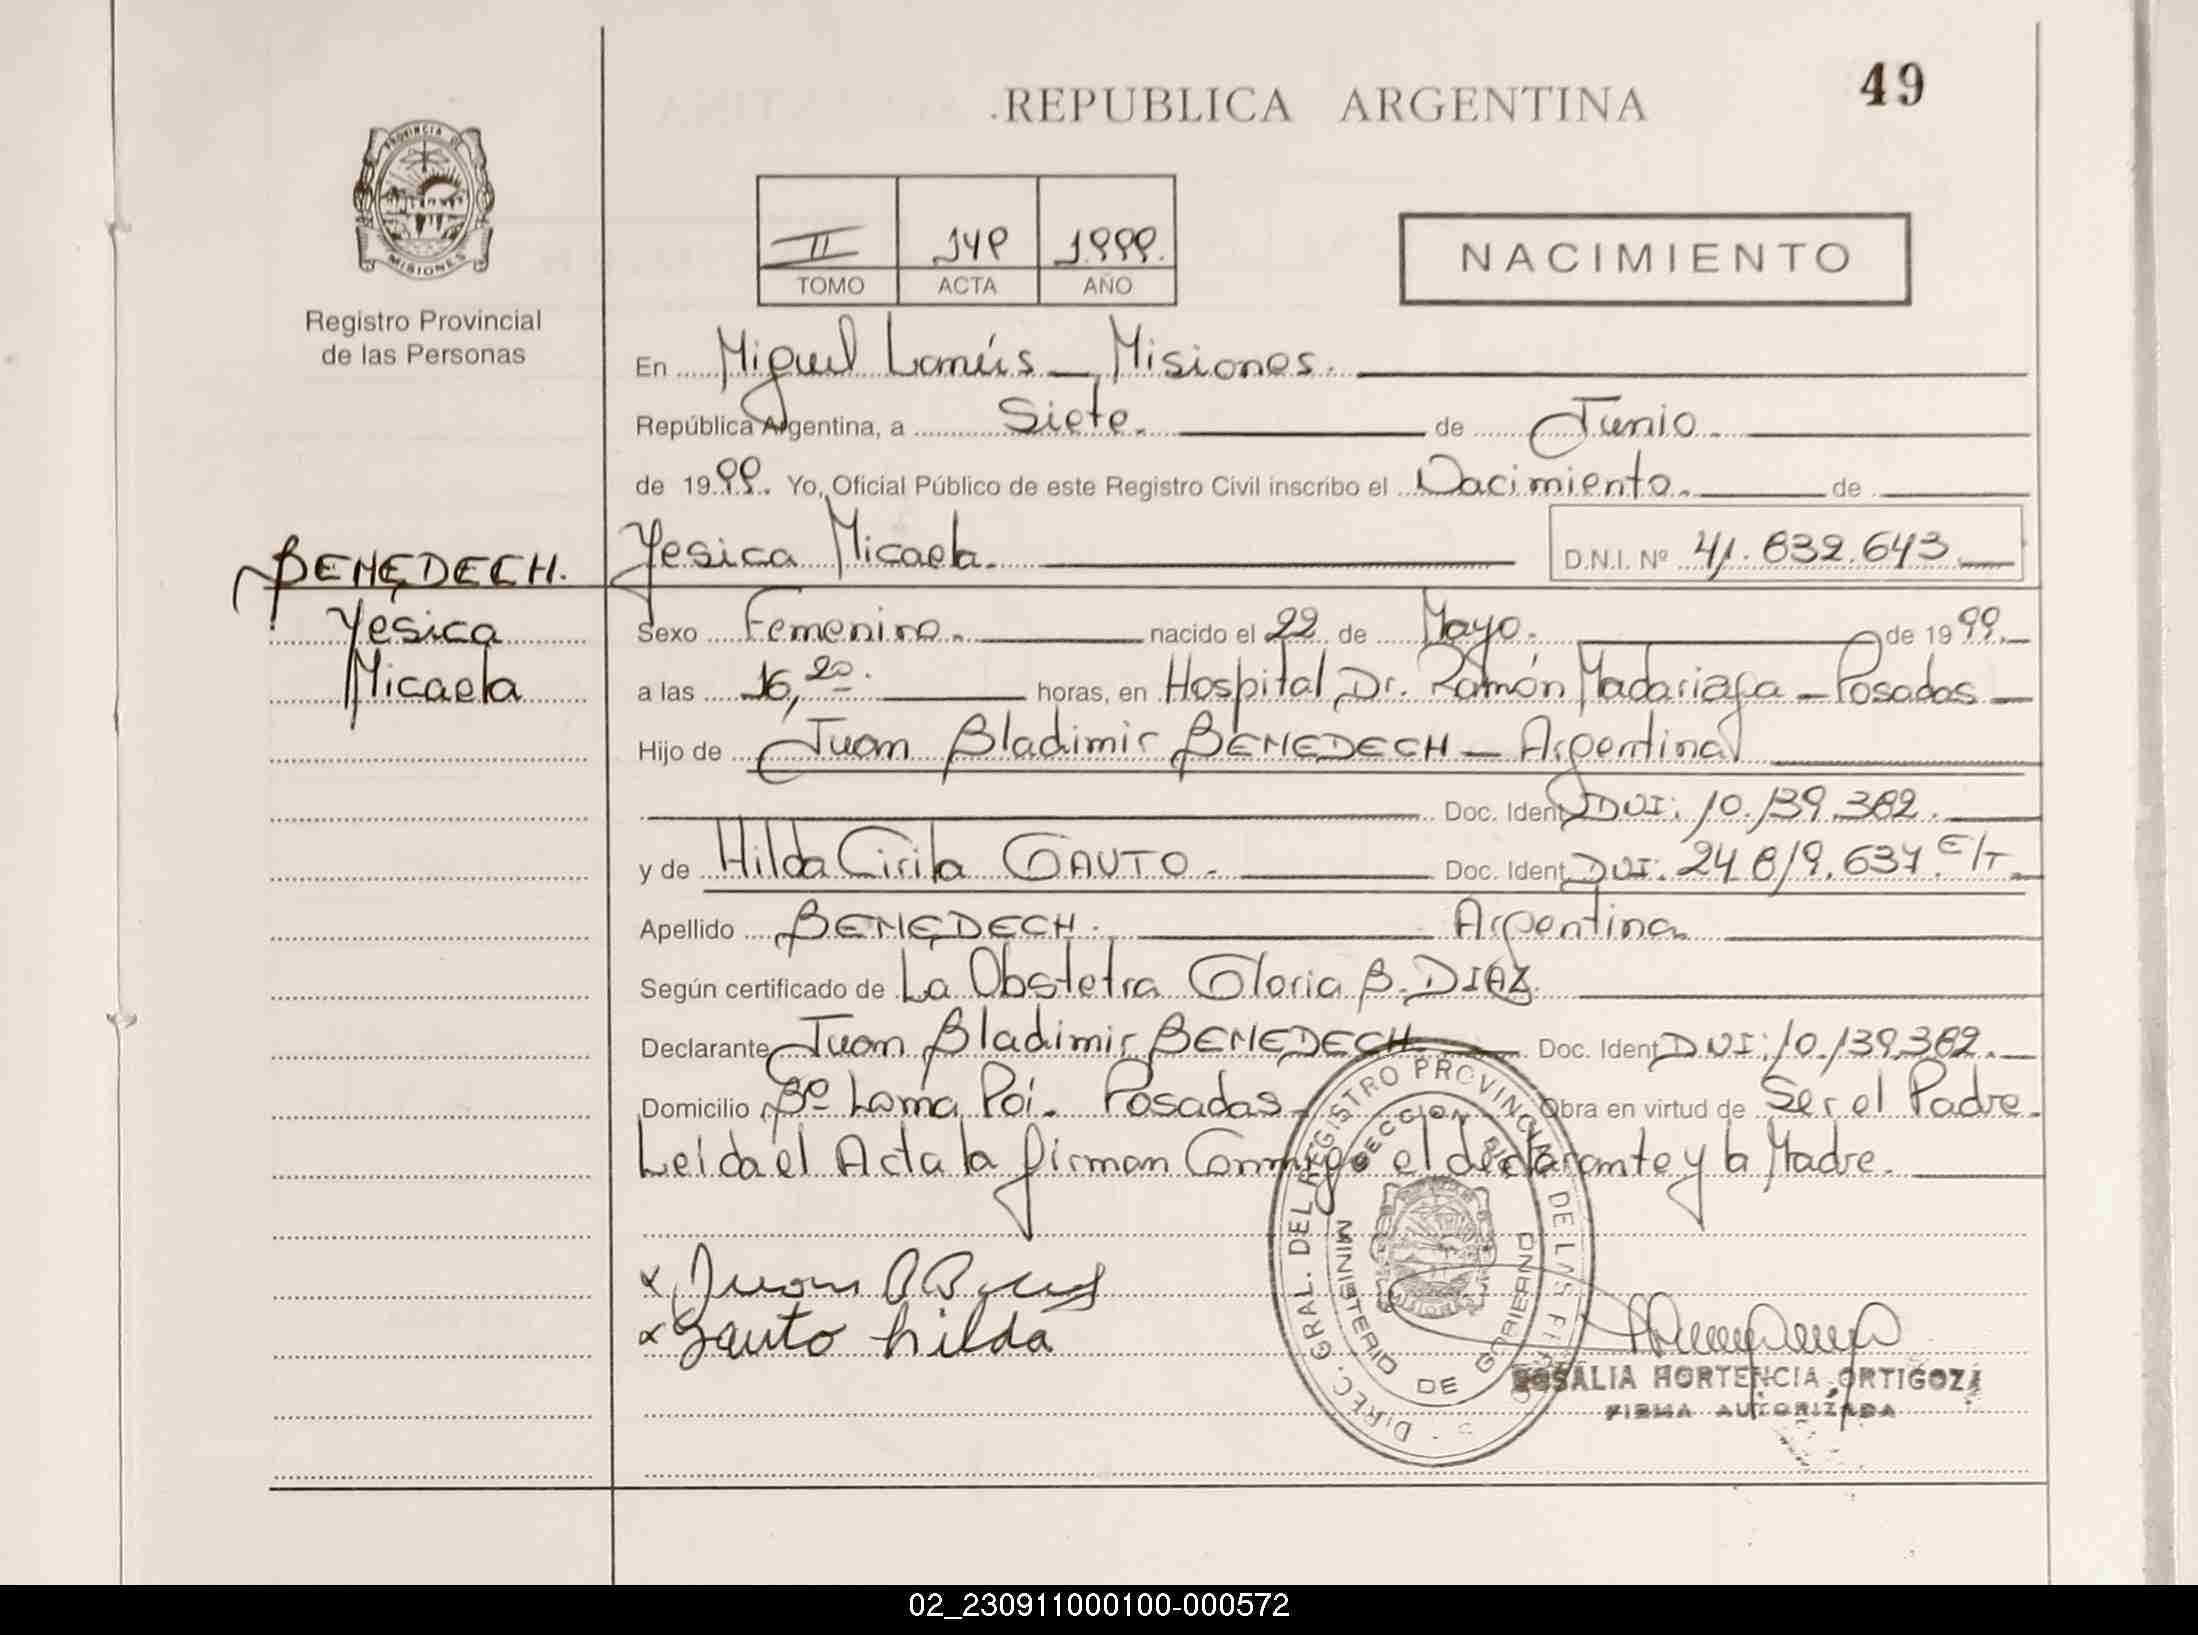 49
REPUBLICA ARGENTINA
PROVINCIA DE
MISIONES
Registro Provincial
de las Personas
II 149 1.999.
TOMO ACTA AÑO
NACIMIENTO
En Miguel Lanús - Misiones.
República Argentina, a Siete. de Junio.
de 1999. Yo, Oficial Público de este Registro Civil inscribo el Nacimiento. de
BENEDECH. Yesica Micaela. D.N.I. Nº 41.832.643.
Yesica Sexo Femenino. nacido el 22 de Mayo. de 1999.
Micaela a las 16,20. horas, en Hospital Dr. Ramón Madariaga - Posadas
Hijo de Juan Bladimir BENEDECH - Argentina
Doc. Ident DNI: 10.139.382.
y de Hilda Cirila GAUTO. Doc. Ident DNI: 24.819.637. E/T.
Apellido BENEDECH. Argentina.
Según certificado de La Obstetra Gloria B. DIAZ.
Declarante Juan Bladimir BENEDECH. Doc. Ident DNI: 10.139.382.
Domicilio Bº Loma Poi. Posadas. Obra en virtud de Ser el Padre.
Leida el Acta la firman Conmigo el declarante y la Madre.
DIREC. GRAL. DEL REGISTRO PROVINCIAL DE LAS
MINISTERIO DE GOBIERNO
x Juan
x Gauto hilda
ROSALIA HORTENCIA ORTIGOZA
FIRMA AUTORIZADA
02_230911000100-000572